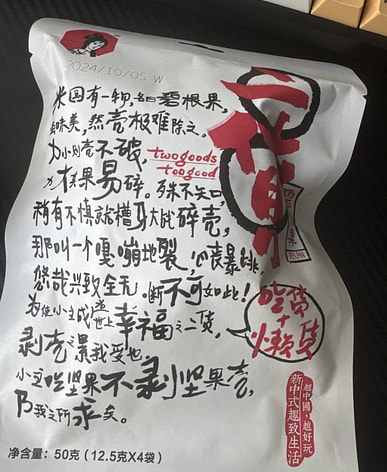 2024/10/05 W
米国有一物,名曰碧根果,
其味美,然壳极难除之。
力小则壳不破
力大果易碎。殊不知,
稍有不慎就槽牙大战碎壳,
那叫一个嘎嘣地裂,心丧暴跳,
悠哉兴致全无。断不可如此!
为使小主成为世上幸福之二货,
剥壳之累我受也,
小主吃坚果不剥坚果壳,
乃我之所求矣。
twogoods
toogood
二货
吃货
+
懒货
越中國,越好玩
新中式趣致生活
净含量:50克(12.5克X4袋)